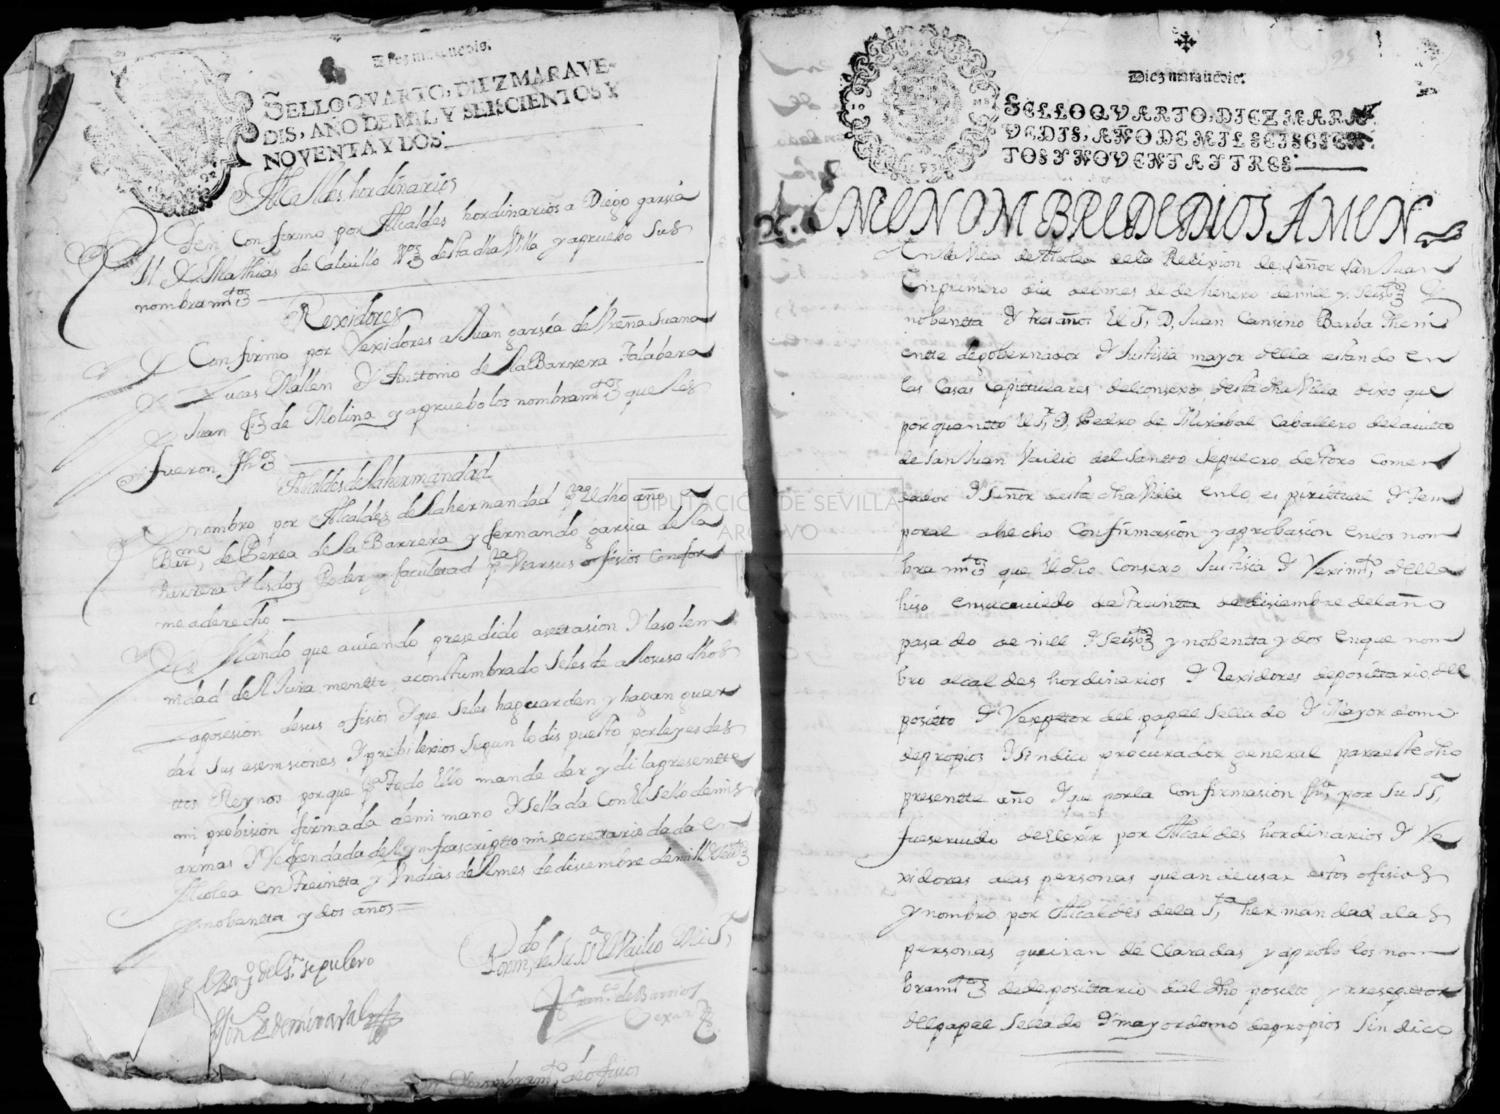 Diez marauedis.
SELLO QVARTO, DIEZ MARAVE-
DIS, AÑO DE MIL Y SEISCIENTOS Y
NOVENTA Y DOS.
Alcaldes hordinarios
Confirmo por Alcaldes hordinarios a Diego garsia
Mathias de Calvillo Vos desta dha Villa y apruebo sus
nombramtos
Rexidores
Confirmo por Rexidores a Juan garsia de Ureña Juan
Lucas Mallen Y Anttonio de la Barrera Talabera
Juan de Molina y apruebo los nombramtos que les
fueron fhos
Alcaldes de la hermandad
nombro por Alcaldes de la hermandad pa el dho año a
Barme de Perea de la Barrera y fernando garsia de la
Barrera Y les doy Poder y facultad pa Usar sus ofisios confor
me a derecho
Mando que auiendo presedido asettasion Y la solem
nidad del Jura mentto acosttumbrado se les de a los suso dhos
la posesion de sus ofisios Y que se les haguarden y hagan guar
dar sus esensiones Y prebilexios segun lo dis puesto por leyes des
ttos Reynos porque pa todo ello mande dar y di la presentte
mi probision firmada de mi mano Y sellada Con el sello de mis
armas Y Refrendada del ynfrascripto mi secretario dada en
Alcolea en treintta y Un dias del mes de disiembre de mill Y seistos
y nobentta y dos años
El Baylio del Sto sepulcro
Por mdo de Su Sa el Vailio Mi Sr
Franco de Barrios
Nombramto de ofisios
Diez marauedis.
SELLO QVARTO, DIEZ MARA
VEDIS, AÑO DE MIL SEISCIEN
TOS Y NOVENTA Y TRES.
EN EL NOMBRE DE DIOS AMEN
En la Villa de Alcolea de la Relixion de Señor San Juan
En primero dia del mes de henero de mil y Seistos Y
nobentta Y tres años El Sr D, Juan Cansino Barba theni
entte de gobernador Y Justisia mayor della estando en
las Casas Capitulares del consexo desta dha Villa dixo que
por quantto el Sr D, Pedro de Mirabal Caballero del auitto
de San Juan Vailio del Santto Sepulcro de Toro Comen
dador Y Señor desta dha Villa en lo es pirittual Y tem
poral a hecho Confirmasion y aprobasion en los nom
bra mtos que el dho Consexo Justisia Y Reximto della
hiso en su cauildo de treintta de disiembre del año
pasa do de mill Y Seistos y nobentta y dos en que nom
bro alcaldes hordinarios Y Rexidores deposittario del
positto Y Reseptor del papel sella do Y Mayordomo
de propios Y Sindico procurador general para este dho
presentte año Y que por la Confirmasion fha por Su Sa,
fue seruido de elexir por Alcaldes hordinarios Y Re
xidores a las personas que an de usar estos ofisios
y nombro por Alcaldes de la Sta hermandad a las
personas que iran de claradas y aprobo los nom
bramtos de depositario del dho positto y reseptor
del papel Sella do Y mayordomo de propios Sindico
DIPUTACIÓN DE SEVILLA
ARCHIVO